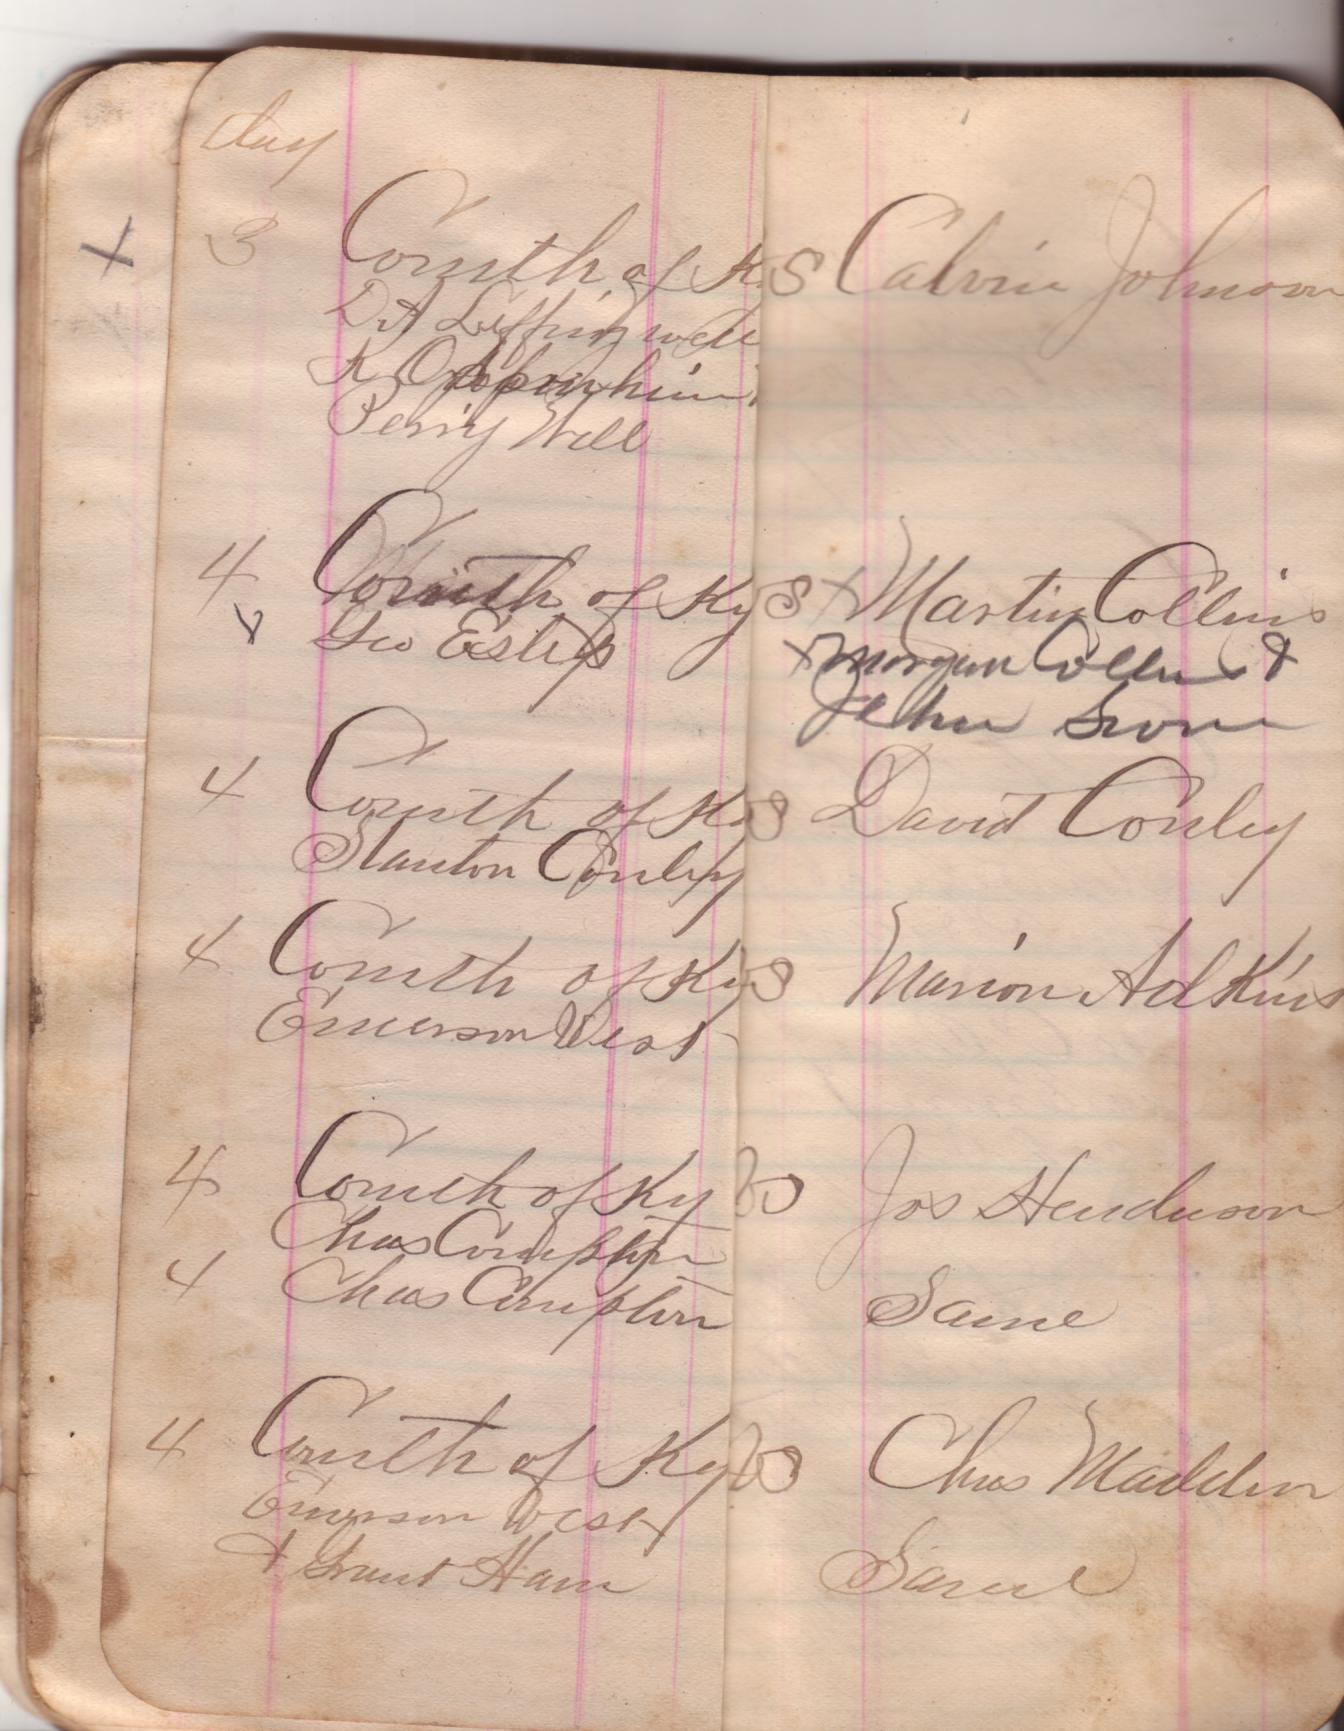 day
3 Comth of K S Calvin Johnson
D A Leffingwell
Perry Will
4 Comth of Ky S x Martin Collins
v Geo Estep x Morgan Collins &
John
4 Comth of Ky S David Conley
Stanton Conley
4 Comth of Ky S Marion Adkins
Emerson West
4 Comth of Ky vs Jos Henderson
Chas Compton
4 Chas Compton Same
4 Comth of Ky vs Chas Madden
Emerson West
& Grant Ham Same